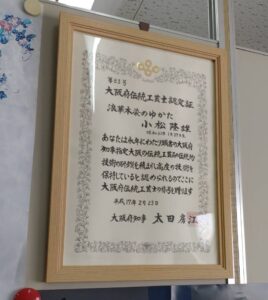 大阪府伝統工芸士認定証
浪華本染めゆかた
小松隆雄
あなたは永年にわたり頭書の大阪府
知事指定大阪の伝統工芸品伝統的
技術の研鑽を積まれ高度の技術を
保持していると認められるのでここに
大阪府伝統工芸士の称号を贈ります
平成17年2月23日
大阪府知事 太田房江